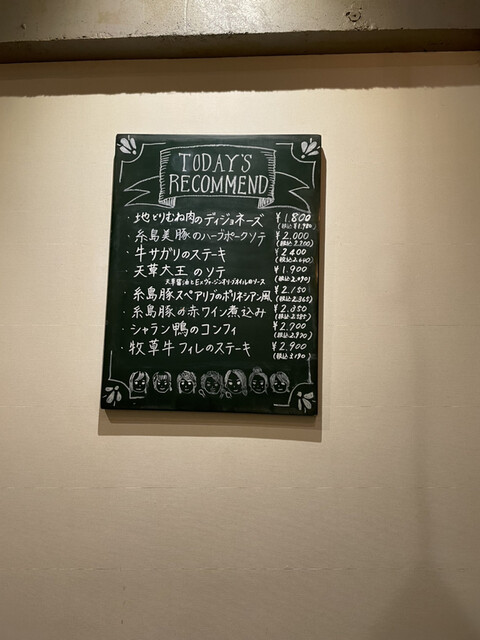 TODAY'S
RECOMMEND
・地どりむね肉のディジョネーズ ¥1.800
(税込¥1.980)
・糸島美豚のハーブポークソテ ¥2.000
(税込2.200)
・牛サガリのステーキ ¥2.400
(税込2.640)
・天草大王のソテ ¥1.900
天草醤油とEXヴァージンオリーブオイルのソース (税込2.090)
・糸島豚スペアリブのポリネシアン風 ¥2.150
(税込2.365)
・糸島豚の赤ワイン煮込み ¥2.350
(税込2.585)
・シャラン鴨のコンフィ ¥2.700
(税込2.970)
・牧草牛フィレのステーキ ¥2.900
(税込3.190)